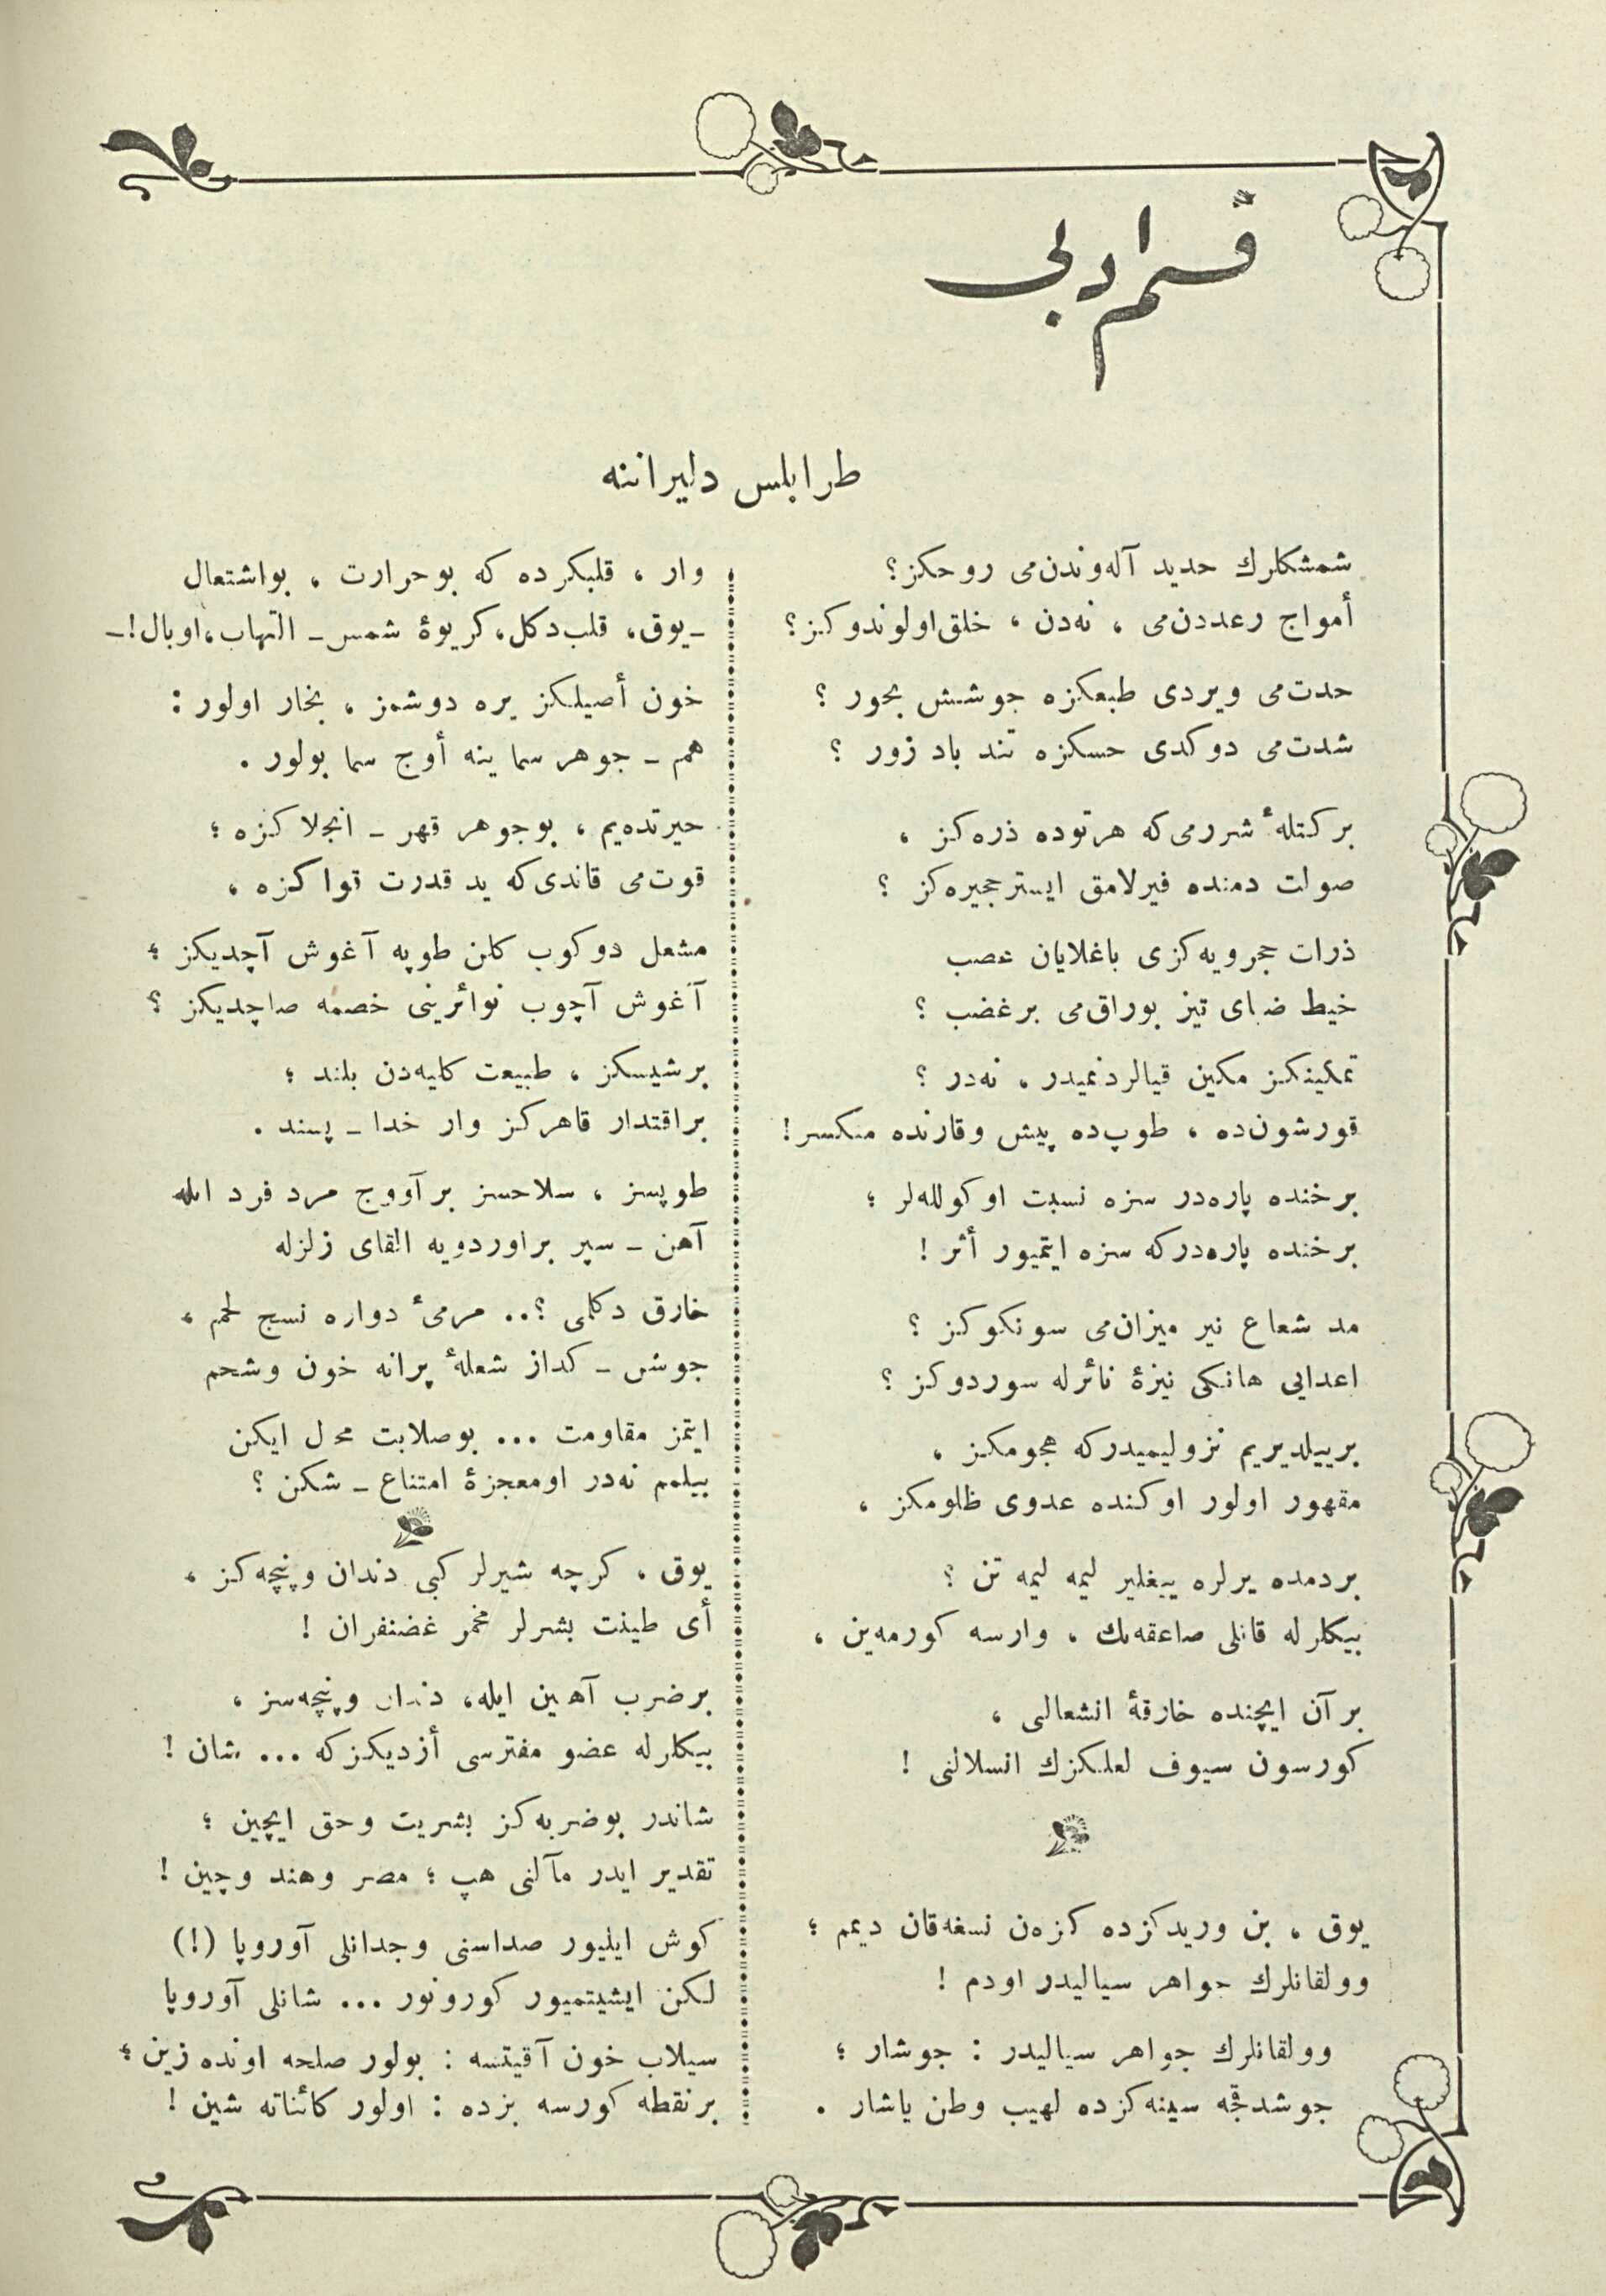 قسم ادبی
طرابلس دلیراننه
شمشكلرك حدید آله‌وندن‌می روحكز؟
أمواج رعددن‌می ، نه‌دن ، خلق‌اولوندوكز؟
حدت‌می ویردی طبعكزه جوشش بحور ؟
شدت‌می دوكدی حسكزه تند باد زور ؟
بر كتلهٔ شررمی‌كه هرتوده ذره‌كز ،
صولت دمنده فیرلامق ایستر حجیره‌كز ؟
ذرات حجرویه‌كزی باغلایان عصب
خیط ضیای تیز بوراق‌می برغضب ؟
تمكینكز مكین قیالردنمیدر ، نه‌در ؟
قورشون‌ده ، طوپ‌ده پیش وقارنده منكسر!
برخنده پاره‌در سزه نسبت اوكولله‌لر ؛
برخنده پاره‌دركه سزه ایتمیور أثر !
مد شعاع نیر میزان‌می سونكوكز ؟
اعدایی هانكی نیزهٔ نائرله سوردوكز ؟
برییلدیریم نزولیمیدركه هجومكز ،
مقهور اولور اوكنده عدوی ظلومكز ،
بردمده یرلره ییغلیر لیمه لیمه تن ؟
بیكلرله قانلی صاعقه‌نك ، وارسه كورمه‌ین ،
بر آن ایچنده خارقهٔ انشعالی ،
كورسون سیوف لعلكزك انسلالنی !
یوق ، بن وریدكزده كزه‌ن نسغه‌قان دیمم ؛
وولقانلرك جواهر سیالیدر اودم !
وولقانلرك جواهر سیالیدر : جوشار ؛
جوشدقجه سینه‌كزده لهیب وطن یاشار .
وار ، قلبكزده كه بوحرارت ، بواشتعال
ـ یوق، قلب‌دكل، كریوهٔ شمس ـ التهاب، اوبال! ـ
خون أصیلكز یره دوشمز ، بخار اولور :
هم ـ جوهر سما ینه أوج سما بولور .
حیرتده‌یم ، بوجوهر قهر ـ انجلاكزه ؛
قوت‌می قاندی‌كه ید قدرت قواكزه ،
مشعل دوكوب كلن طوپه آغوش آچدیكز ؛
آغوش آچوب نوائرینی خصمه صاچدیكز ؟
برشیسكز ، طبیعت كلیه‌دن بلند ؛
براقتدار قاهركز وار خدا ـ پسند .
طوپسز ، سلاحسز بر آووج مرد فرد ایله
آهن ـ سپر براوردویه القای زلزله
خارق دكلمی ؟.. مرمیٔ دواره نسج لحم ،
جوش ـ كداز شعلهٔ پرانه خون وشحم
ایتمز مقاومت ... بوصلابت محل ایكن
بیلمم نه‌در اومعجزهٔ امتناع ـ شكن ؟
یوق ، كرچه شیرلر كبی دندان وپنچه‌كز ،
أی طینت بشرلر مخمر غضنفران !
برضرب آهنین ایله، دندان وپنچه‌سز ،
بیكلرله عضو مفترسی أزدیكزكه ... شان !
شاندر بوضربه‌كز بشریت وحق ایچین ؛
تقدیر ایدر مآلنی هپ ؛ مصر وهند وچین !
كوش ایلیور صداسنی وجدانلی آوروپا (!)
لكن ایشیتمیور كورونور ... شانلی آوروپا
سیلاب خون آقیتسه : بولور صلحه اونده زین ؛
برنقطه كورسه بزده : اولور كائناته شین !